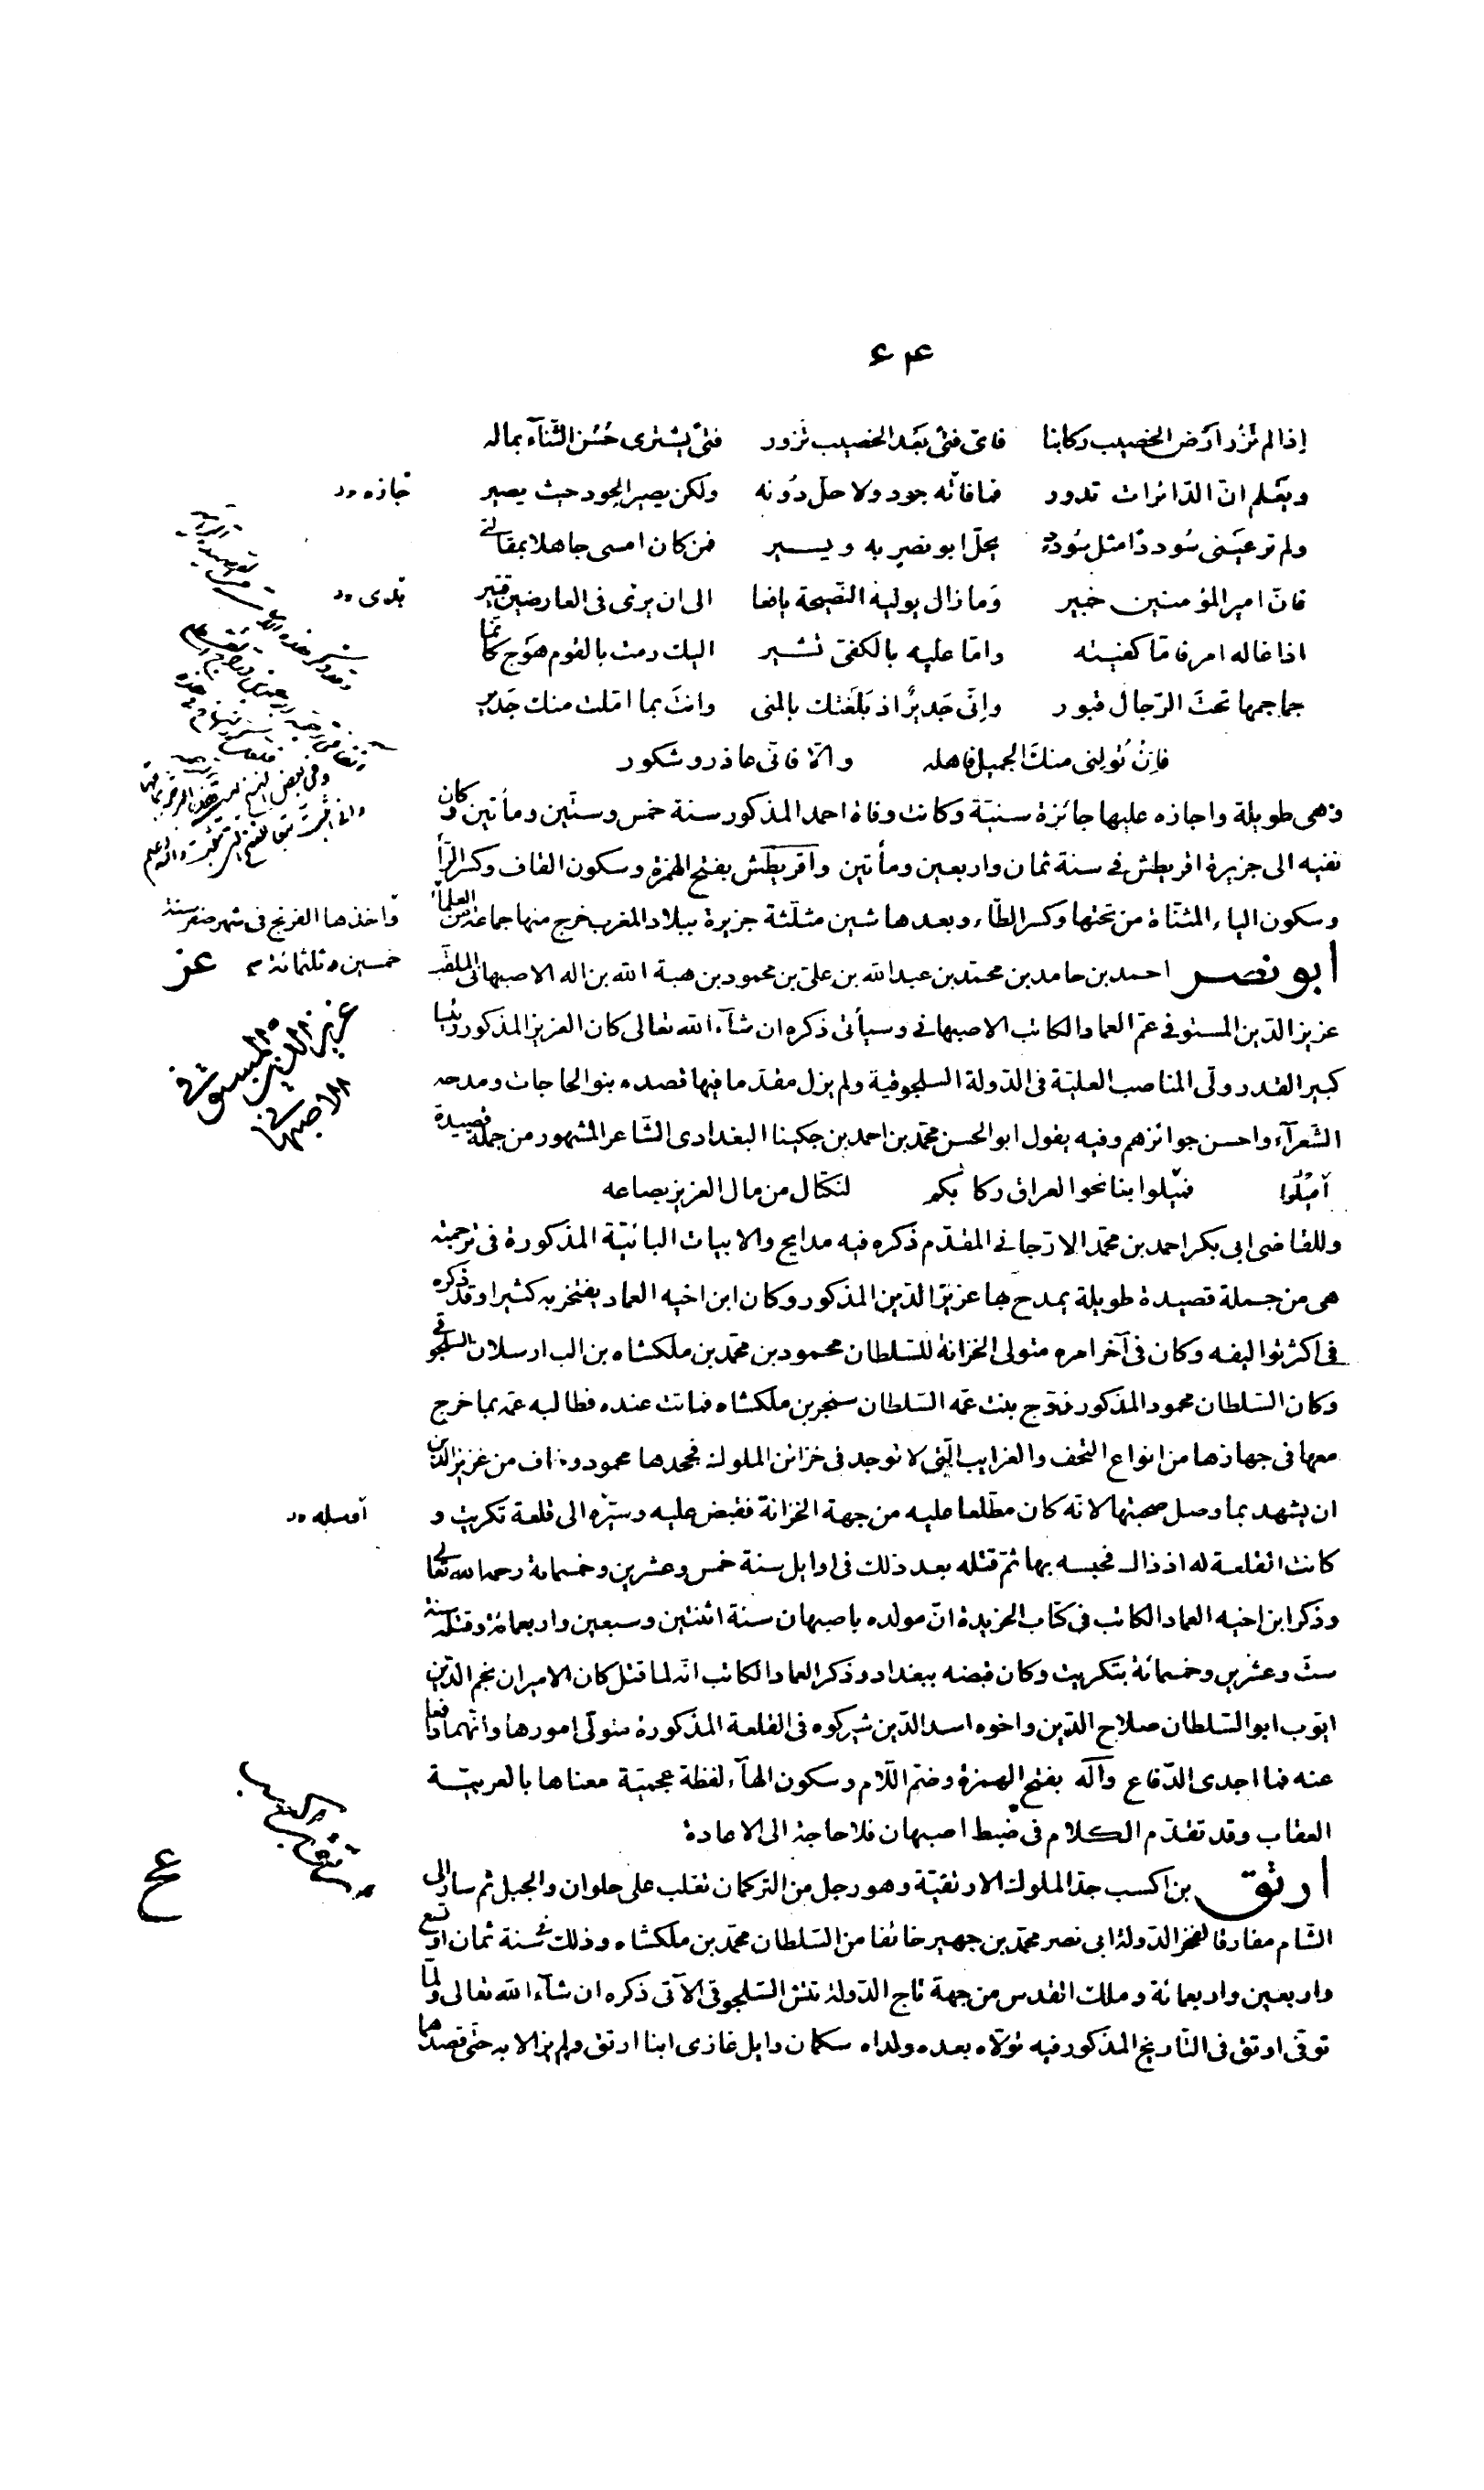 ۶۴
إذا لم تزُر أرض الخصيب ركابنا فاىّ فتىً بَعَد الخصيب تزور فتىً يشترى حُسُن الثّنآء بماله
ويعَلم انّ الدّائرات تدور فما فاته جود ولا حلّ دُونه ولكن يصير الجود حيث يصير
ولم ترعيَنى سُوددًا مثل سُودد يحلّ ابو نصرٍ به ويسير فمن كان امسى جاهلا بمقالتى
فانّ امير المؤمنين خبير وَما زال يوليه النّصيحة يافعا الى ان يرٮى فى العارضين قتير
اذا غاله امر فامّا كفيته وامّا عليه بالكفىّ تشير اليك رمت بالقوم هوَج كانّما
جماجمها تحتَ الرّجال قبور وإنّى جَديرٌ اذ بَلَغتك بالمنى وانتَ بما امّلت منك جَدير
فإنْ تُولِنى منكَ الجميل فاهله والّا فانّى عاذر وشكور
وهى طويلة واجازه عليها جائزة سنيّة وكانت وفاة احمد المذكور سنة خمس وستّين ومأتين وكان
نفيه الى جزيرة اقريطش فى سنة ثمان واربعين ومأتين واقريطَش بفتح الهمزة وسكون القاف وكسر الرّآء
وسكون الياء المثنّاة من تحتها وكسر الطّاء وبعدها شين مثلّثة جزيرة ببلاد المغرب خرج منها جماعة من العلمآء
ابو نصر احمد بن حامد بن محمّد بن عبد الله بن علىّ بن محمود بن هبة الله بن اله الاصبهانى الملقّب
عزيز الدّين المستوفى عمّ العماد الكاتب الاصبهانى وسيأتى ذكره ان شآء الله تعالى كان العزيز المذكور رئيسا
كبير القدر ولّى المناصب العليّة فى الدّولة السلجوقية ولم يزل مقدّما فيها قصده بنو الحاجات ومدحه
الشّعرآء واحسن جوائزهم وفيه يقول ابو الحسن محمّد بن احمد بن جكينا البغدادى الشّاعر المشهور من جملة قصيدة
اميلُوا فميّلوا بنا نحو العراق ركابكم لنكتال من مال العزيز بصاعه
وللقاضى ابى بكر احمد بن محمّد الارّجانى المقدّم ذكره فيه مدايح والابيات البائيّة المذكورة فى ترجمته
هى من جملة قصيدة طويلة يمدح بها عزيز الدّين المذكور وكان ابن اخيه العماد يفتخر به كثيرا وقد ذكره
فى اكثر تواليفه وكان فى آخر امره متولى الخزانة للسّلطان محمود بن محمّد بن ملكشاه بن الب ارسلان السلجوقى
وكان السّلطان محمود المذكور تزوّج بنت عمّه السّلطان سنجر بن ملكشاه فماتت عنده فطالبه عمّه بما خرج
معها فى جهازها من انواع التحف والغرايب الّتى لا توجد فى خزائن الملوك فجحدها محمود وخاف من عزيز الدّين
ان يشهد بما وصل صحبتها لانّه كان مطّلعا عليه من جهة الخزانة فقبض عليه وسيّره الى قلعة تكريت و
كانت القلعة له اذ ذاك فحبسه بها ثمّ قتله بعد ذلك فى اوايل سنة خمس وعشرين وخمسمائة رحمه الله تعالى
وذكر ابن اخيه العماد الكاتب فى كتاب الخريدة انّ مولده باصبهان سنة اثنتين وسبعين واربعمائة وقتله سنة
ستّ وعشرين وخمسمائة بتكريت وكان قبضه ببغداد وذكر العماد الكاتب انّه لما قتل كان الاميران نجم الدّين
ايّوب ابو السّلطان صلاح الدّين واخوه اسد الدّين شيركوه فى القلعة المذكورة متولّى امورها وانّهما دافعا
عنه فما اجدى الدّفاع وآله بفتح الهمزة وضمّ اللّام وسكون الهآء لفظة عجميّة معناها بالعربيّة
العقاب وقد تقدّم الكلام فى ضبط اصبهان فلا حاجة الى الاعادة
ارتق بن اكسب جدّ الملوك الارتقيّة وهو رجل من التركمان تغلب على حلوان والجبل ثم سار الى
الشّام مفارقا لفخر الدّولة ابى نصر محمّد بن جهير خائفا من السّلطان محمّد بن ملكشاه وذلك فى سنة ثمان او تسع
واربعين واربعمائة وملك القدس من جهة تاج الدّولة تتش السّلجوقى الآتى ذكره ان شآء الله تعالى ولمّا
توفّى ارتق فى التّاريخ المذكور فيه تولّاه بعده ولداه سكمان وايل غازى ابنا ارتق ولم يزالا به حتّى قصدهما
واخذها الفرنج فى شهر صفر سنة
خمسين وثلثمائة
عز
عزيز الدّين المستوفى
الاصبهانى